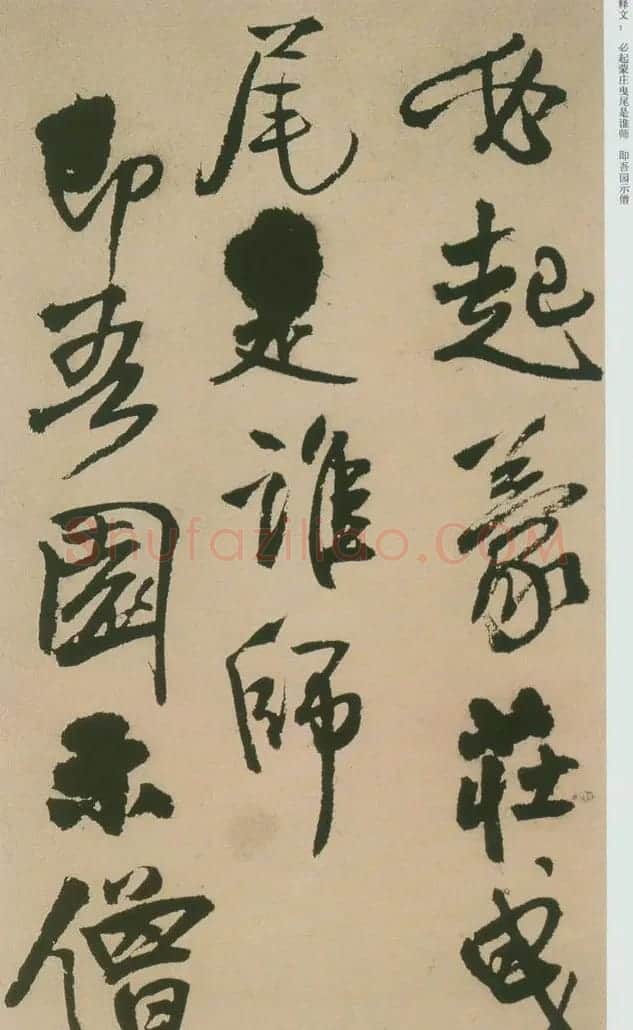 必起蒙莊曳
尾是誰師
即吾園示僧
释文：必起蒙庄曳尾是谁师 即吾园示僧
Shufaziliao.COM